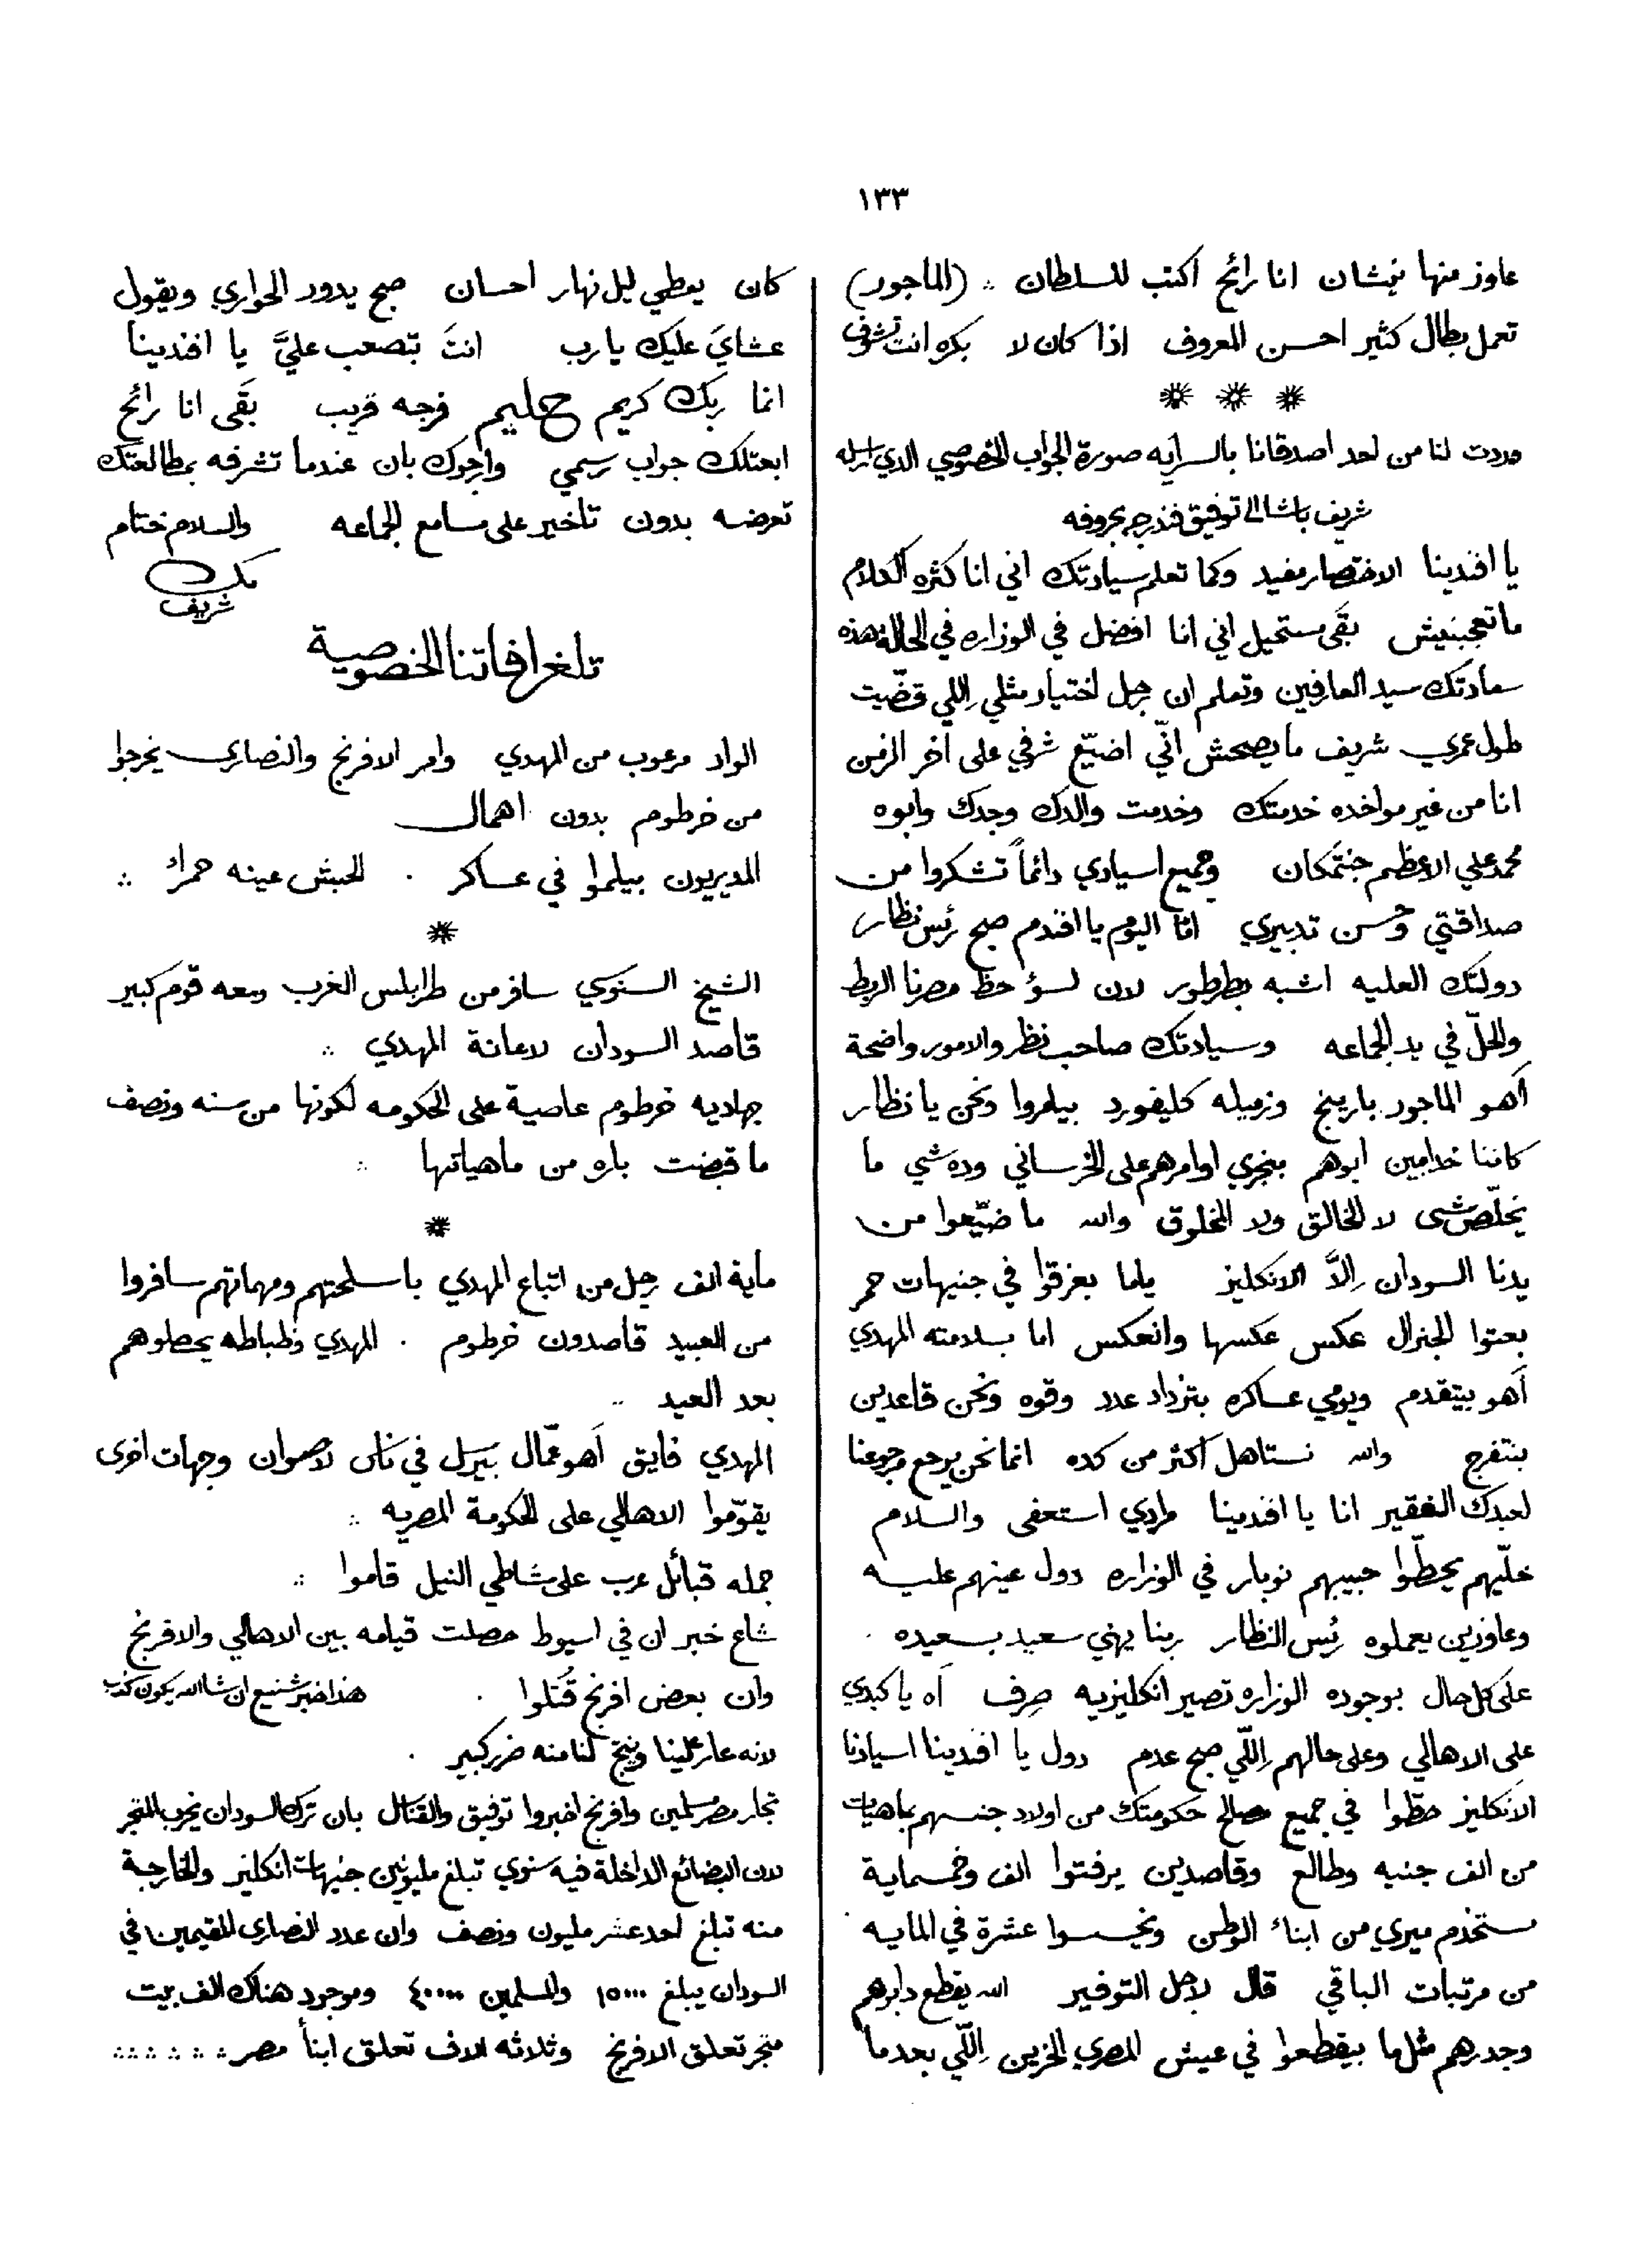 ١٣٣
عاوز منها نيشان انا رائح اكتب للسلطان ∴ (الماجور)
تعمل بطال كثير احسن المعروف اذا كان لا بكره انت تشوف
وردت لنا من احد اصدقانا بالسرايه صورة الجواب الخصوصي الذي ارسله
شريف باشا الى توفيق فندرجه بحروفه
يا افندينا الاختصار مفيد وكما تعلم سيادتك اني انا كثره الكلام
ما تعجبنيش بقى مستحيل اني انا افضل في الوزاره في الحالة هذه
سعادتك سيد العارفين وتعلم ان رجل اختيار مثلي اللي قضّيت
طول عمري شريف ما يصحش انّي اضيّع شرفي على اخر الزمن
انا من غير مواخذه خدمتك وخدمت والدك وجدك وابوه
محمد علي الاعظم جنتمكان وجميع اسيادي دائماً تشكروا من
صداقتي وحسن تدبيري امّا اليوم يا افندم صبح رئس نظار
دولتك العليه اشبه بطرطور لان لسؤ حظ مصرنا الربط
والحلّ في يد الجماعه وسيادتك صاحب نظر والامور واضحة
أهو الماجور بارينج وزميله كليفورد بيامروا ونحن يا نظار
كاننا خدامين ابوهم بنجري اوامرهم على الخرساني وده شي ما
يخلّصشى لا للخالق ولا المخلوق والله ما ضيّعوا من
يدنا السودان إلاّ الانكليز ياما بعزقوا في جنيهات حمر
بعتوا الجنرال عكس عكسها وانعكس اما بسلامته المهدي
أهو بيتقدم ويومي عساكره بتزداد عدد وقوه ونحن قاعدين
بنتفرج والله نستاهل اكثر من كده انما نحن يرجع مرجوعنا
لعبدك الفقير انا يا افندينا مرادي استعفى والسلام
خلّيهم يحطّوا حبيبهم نوبار في الوزاره دول عينهم عليه
وعاوزين يعملوه رئس النظار ربنا يهني سعيد بسعيده
على كل حال بوجوده الوزاره تصير انكليزيه صِرف آه يا كبدي
على الاهالي وعلى حالهم اللّي صبح عدم دول يا افندينا اسيادنا
الانكليز حطّوا في جميع مصالح حكومتك من اولاد جنسهم بماهيات
من الف جنيه وطالع وقاصدين يرفتوا الف وخمسماية
مستخدم ميري من ابناء الوطن ويخسوا عشرة في المايه
من مرتبات الباقي قال لاجل التوفير الله يقطع دابرهم
وجدرهم مثل ما بيقطعوا في عيش المصري الحزين اللّي بعد ما
كان يعطي ليل نهار احسان صبح يدور الحواري ويقول
عشايَ عليك يا رب انتَ تصعب عليَّ يا افندينا
انما ربك كريم حليم فرجه قريب بقَى انا رائح
ابعتلك جواب رسمي وارجوك بان عندما تشرفه بمطالعتك
تعرضه بدون تاخير على مسامع الجماعه والسلام ختام
شريف
تلغرافاتنا الخصوصية
الواد مرعوب من المهدي وامر الافرنج والنصارى يخرجوا
من خرطوم بدون اهمال
المديريون بيلموا في عساكر . الحبش عينه حمراء ∴
الشيخ السنوسي سافر من طرابلس الغرب ومعه قوم كبير
قاصد السودان لاعانة المهدي ∴
جهاديه خرطوم عاصية على الحكومه لكونها من سنه ونصف
ما قبضت باره من ماهياتها ∴
ماية الف رجل من اتباع المهدي باسلحتهم ومهماتهم سافروا
من العبيد قاصدون خرطوم . المهدي وظباطه يحصلوهم
بعد العيد
المهدي فايق أهو عمّال بيرسل في ناس لاصوان وجهات اخرى
يقوّموا الاهالي على الحكومة المصريه ∴
جمله قبائل عرب على شاطي النيل قاموا ∴
شاع خبر ان في اسيوط حصلت قيامه بين الاهالي والافرنج
وان بعض افرنج قُتلوا . هذا خبر شنيع ان شا الله يكون كذب
لانه عار علينا وينتج لنا منه ضرر كبير .
تجار مصر مسلمين وافرنج اخبروا توفيق والقناصل بان ترك السودان يخرب المتجر
لان البضائع الداخلة فيه سنوي تبلغ مليونين جنيهات انكليز والخارجة
منه تبلغ احد عشر مليون ونصف وان عدد النصارى المقيمين في
السودان يبلغ ١٥٠٠٠ والمسلمين ٤٠٠٠٠ وموجود هناك الف بيت
متجر تعلق الافرنج وثلاثه الاف تعلق ابنأ مصر ∴ ∴ ∴ ∴